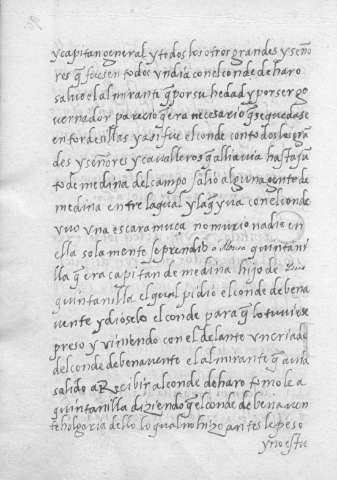 y capitan general y todos los otros grandes y seño
res q fuesen todos vn dia con el conde de haro
salvo el almirante q por su hedad y por ser go
vernador parecio q era necesario q se quedase
en tordesillas y asi fue el conde con todos los grã
des y señores y cavalleros q alli avia hasta jun
to de medina del campo salio alguna gente de
medina entre la qual y la q yva con el conde
vuo vna escaramuça no murio nadie en
ella solamente se prendio a quintani
lla q era capitan de medina hijo de
quintanilla el qual pidio el conde de bena
vente y dioselo el conde para q lo tuviese
preso y viniendo con el delante vn criado
del conde de benavente el almirante q avia
salido a Recibir al conde de haro tomole a
quintanilla diziendo q el conde de benaven
te holgaria dello lo qual no hizo antes le peso
y no estu